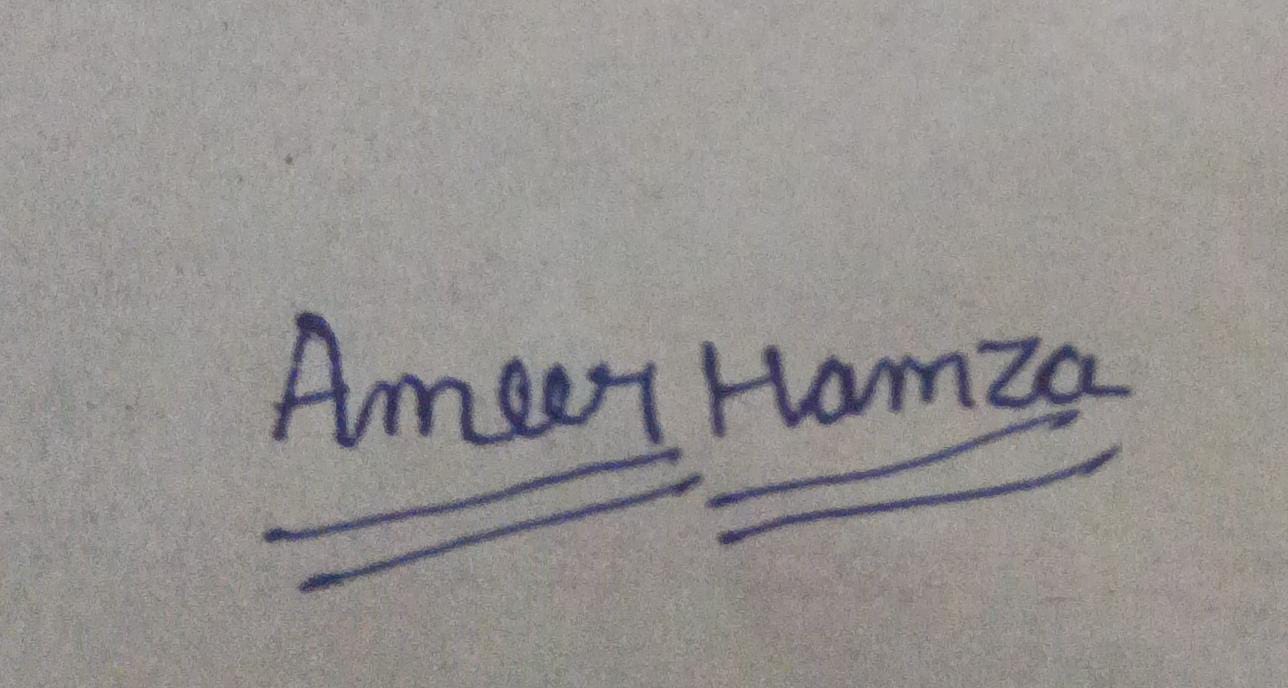 Ameer Hamza